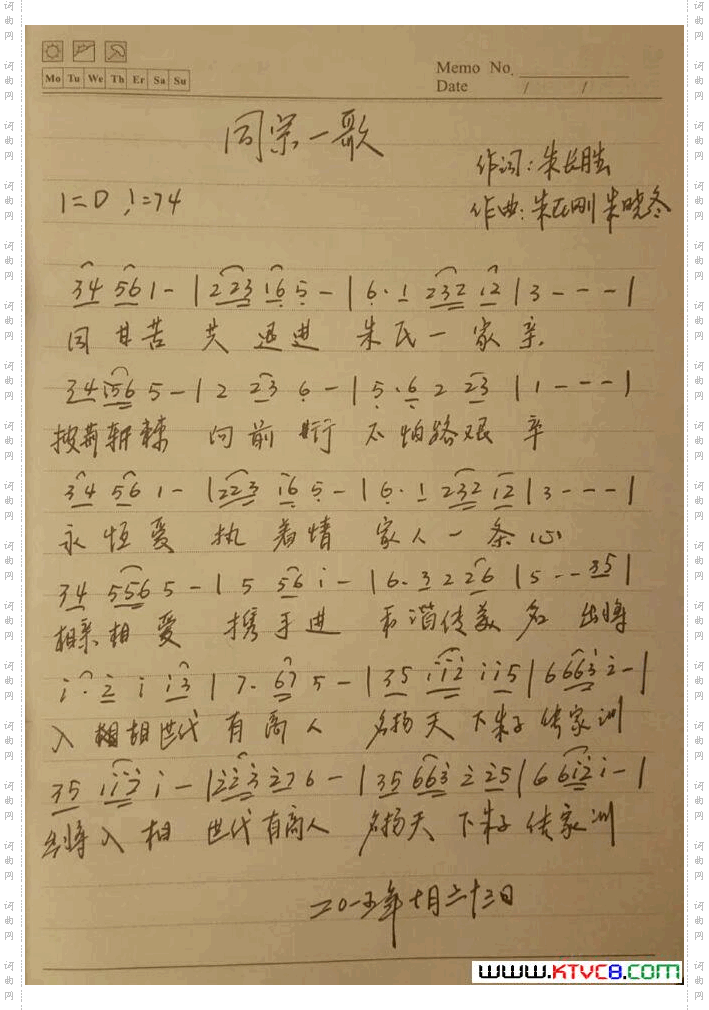 Mo Tu We Th Er Sa Su
Memo No.
Date / /
同宗一歌
作词:朱长胜
1=D ♩=74
作曲:朱氏刚 朱晓冬
34 56 1 - | 223 16 5 - | 6· 1 232 12 | 3 - - - |
同甘苦 共 迈进 朱氏一家亲
34 156 5 - | 2 23 6 - | 5· 6 2 23 | 1 - - - |
披荆斩棘 向前行 不怕路艰辛
34 56 1 - | 223 16 5 - | 6· 1 232 12 | 3 - - - |
永恒爱 执着情 家人一条心
34 556 5 - | 5 56 i - | 6· 3 2 26 | 5 - - 35 |
相亲相爱 携手进 和谐传美名 出将
i· 2 i i3 | 7· 67 5 - | 35 ii2 i i5 | 6 663 2 - |
入相 世代有高人 名扬天下朱子传家训
35 1i2 i - | 223 276 - | 35 663 2 25 | 6 6i2 i - |
出将入相 世代有高人 名扬天下朱子传家训
二〇一五年七月二十三日
www.KTVC8.com
词曲网